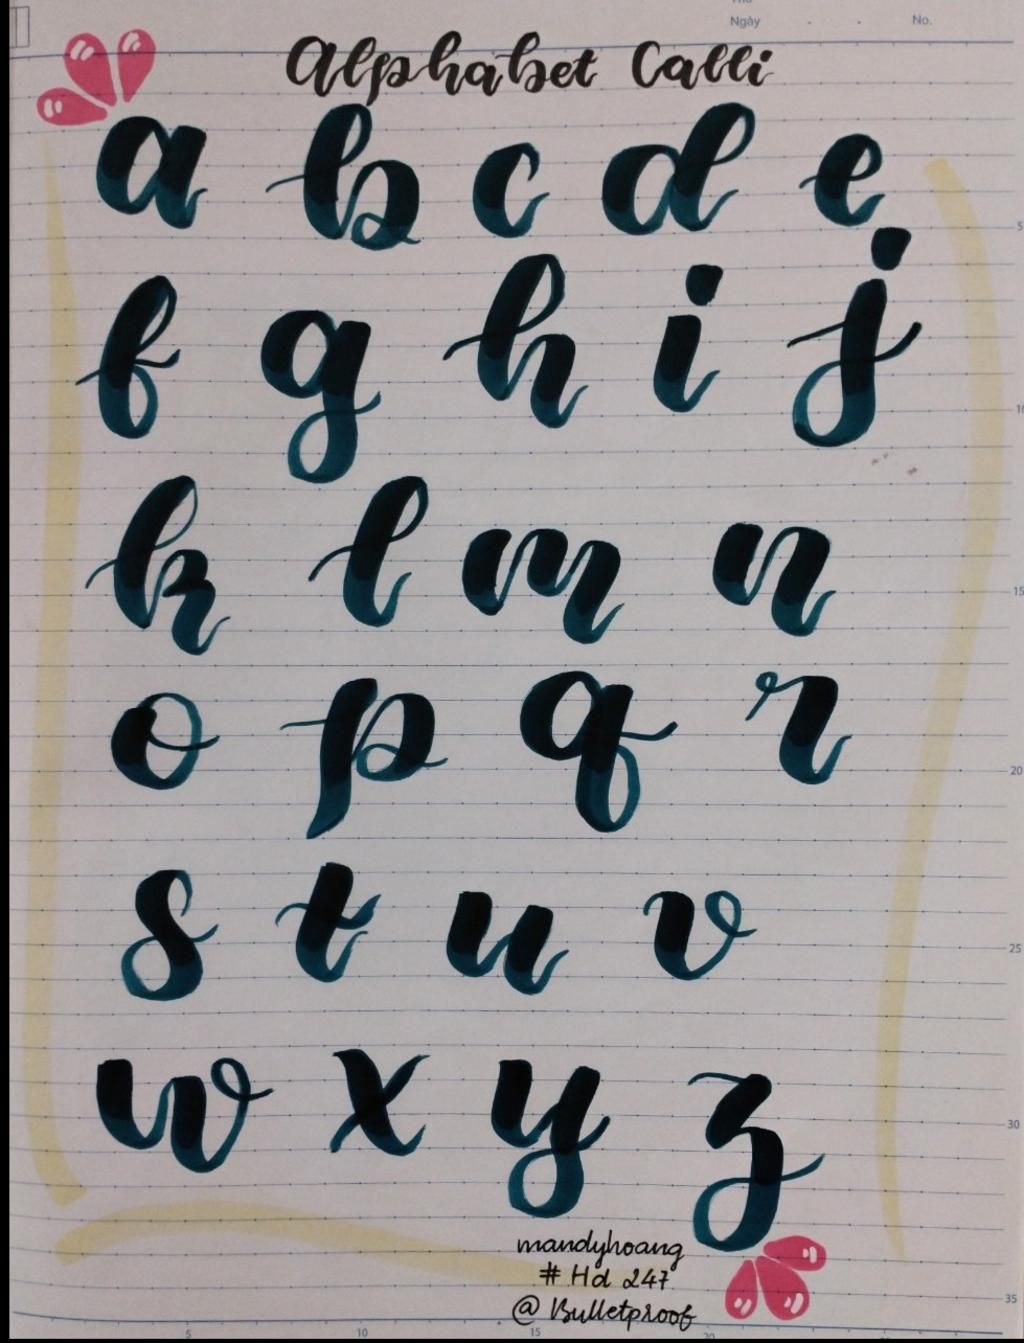 Thứ
Ngày . . No.
Alphabet Calli
a b c d e
f g h i j
k l m n
o p q r
s t u v
w x y z
mandyhoang
# Hd 247
@ Bulletproof
5
10
15
20
25
30
35
5 10 15 20